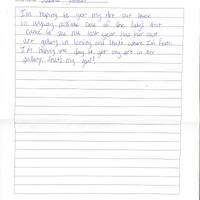 I'm hoping to get my art out there
in anyway possible. One of the lady's that
came to see me last year has her own
art gallery in and that's where I'm from.
I'm hoping one day to get my art in her
gallery. that's my goal!